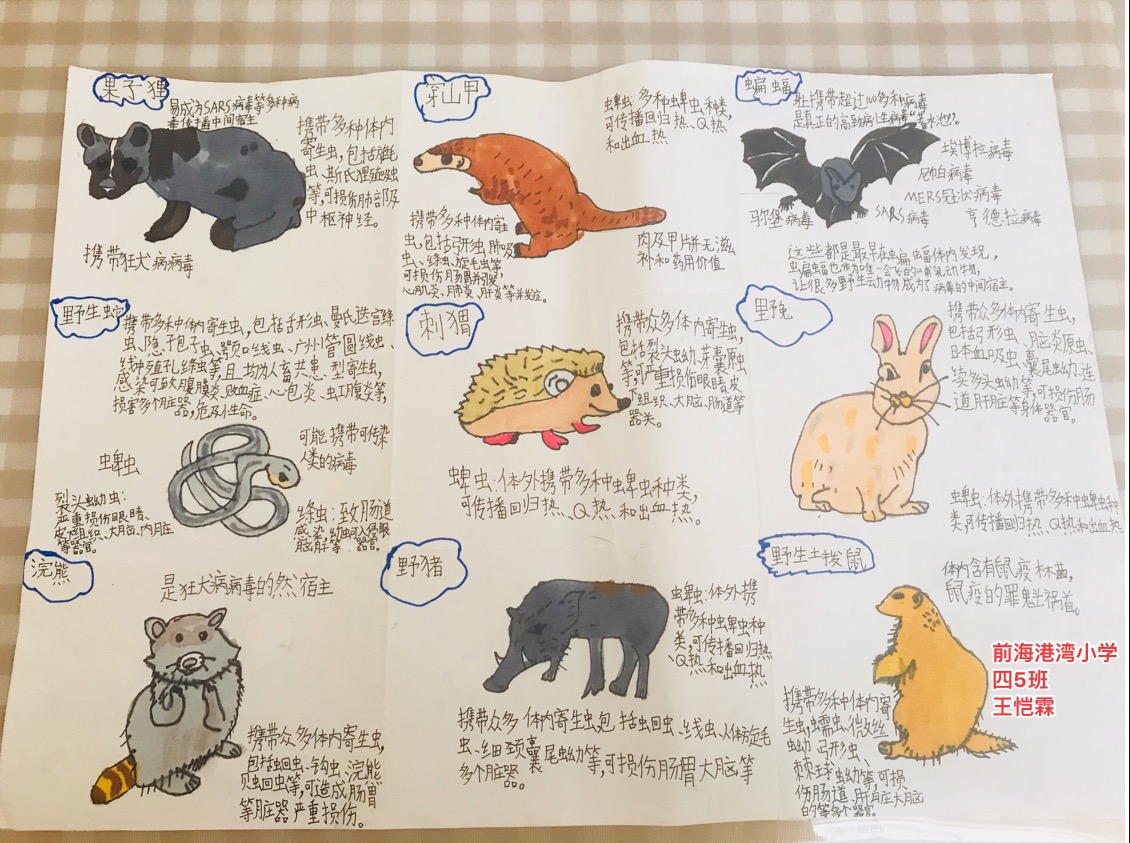 果子狸
易成为SARS病毒等多种病
毒传播中间宿主
携带多种体内
寄生虫，包括旋毛
虫、斯氏狸殖吸虫
等，可损伤肺部及
中枢神经。
携带狂犬病病毒
穿山甲
蜱虫：多种蜱虫种类，
可传播回归热、Q热、
和出血热
携带多种体内寄生
虫，包括弓形虫、肺吸
虫、绦虫、旋毛虫等
可损伤肠胃并引发
心肌炎、肺炎、肝炎等并发症。
肉及甲片并无滋
补和药用价值
蝙蝠
身上携带超过100多种病毒
是真正的高致病性病毒“蓄水池”。
埃博拉病毒
尼帕病毒
MERS冠状病毒
马尔堡病毒
SARS病毒
亨德拉病毒
这些都是最早在蝙蝠体内发现，
蝙蝠也作为唯一会飞的哺乳动物，
让很多野生动物成为了病毒的中间宿主。
野生蛇
携带多种体内寄生虫，包括舌形虫、曼氏迭宫绦
虫、隐孢子虫、颚口线虫、广州管圆线虫、
线中殖孔绦虫等，且均为人畜共患型寄生虫，
感染可致腹膜炎、败血症、心包炎、虹膜炎等，
损害多个脏器，危及生命。
蜱虫
可能携带可传染
人类的病毒
裂头蚴幼虫：
严重损伤眼睛、
皮下组织、大脑、内脏
等器官。
绦虫：致肠道
感染，幼虫可入侵眼
脑肝等器官。
刺猬
携带众多体内寄生虫，
包括裂头虫幼、芽囊原虫
等，可严重损伤眼睛皮
下组织、大脑、肠道等
器关。
蜱虫：体外携带多种蜱虫种类，
可传播回归热、Q热、和出血热。
野兔
携带众多体内寄生虫，
包括弓形虫、脑炎原虫、
日本血吸虫、囊尾蚴、连
续多头蚴等，可损伤肠
道肝脏等身体器官。
蜱虫：体外携带多种蜱虫种
类可传播回归热、Q热和出血热
浣熊
是狂犬病病毒的然宿主
携带众多体内寄生虫，
包括蛔虫、钩虫、浣熊
贝蛔虫等，可造成肠胃
等脏器严重损伤。
野猪
蜱虫：体外携
带多种蜱虫种
类，可传播回归热
、Q热和出血热
携带众多体内寄生虫，包括蛔虫、线虫、人体旋毛
虫、细颈囊尾蚴等，可损伤肠胃大脑等
多个脏器。
野生土拨鼠
体内含有鼠疫杆菌，
鼠疫的罪魁祸首。
携带多种体内寄
生虫，蠕虫、微丝
蚴、弓形虫、
棘球蚴等，可损
伤肠道、肝脏大脑
的等多个器官。
前海港湾小学
四5班
王恺霖